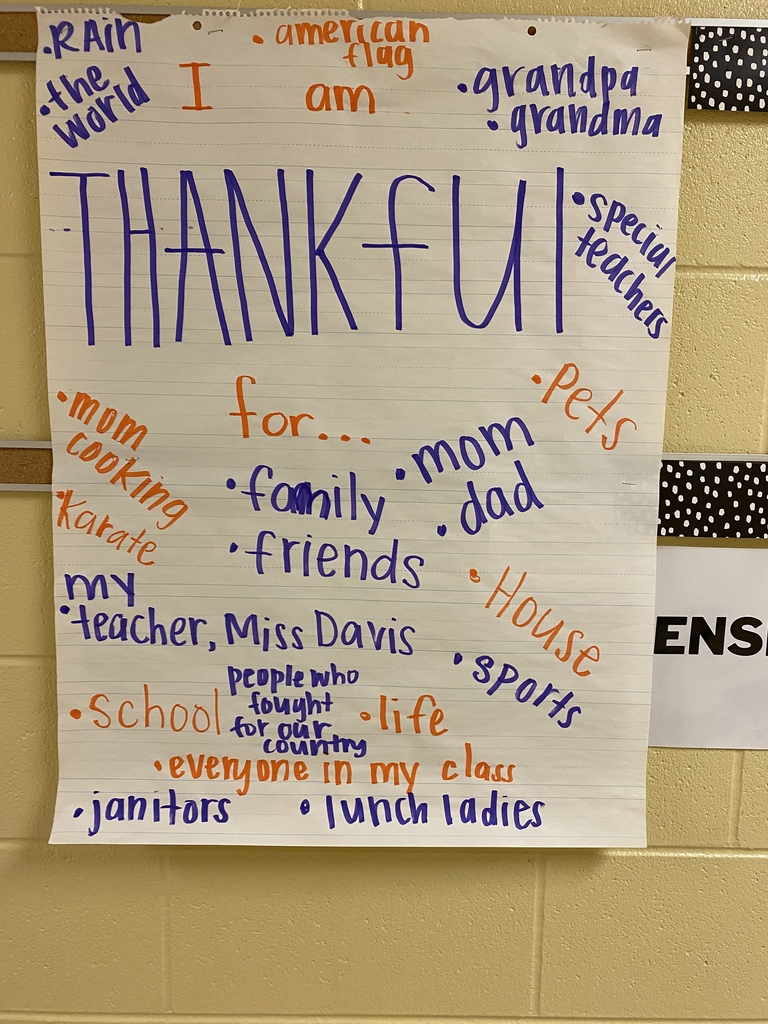 • RAin
• the
world
• american
flag
I am
• grandpa
• grandma
THANKfUl
• special
teachers
• Pets
for...
• mom
cooking
• Karate
• family
• friends
• mom
• dad
my
• teacher, Miss Davis
• House
• sports
• school
people who
fought
for our
country
• life
• everyone in my class
• janitors
• lunch ladies
ENS